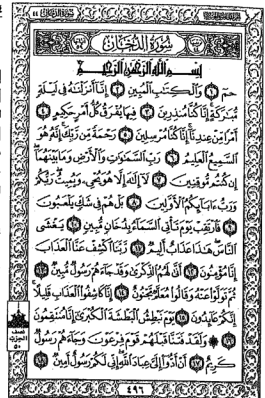 سُورَةُ الدُّخَانِ
بِسْمِ اللَّهِ الرَّحْمَٰنِ الرَّحِيمِ
حمٓ ١ وَالْكِتَابِ الْمُبِينِ ٢ إِنَّا أَنزَلْنَاهُ فِي لَيْلَةٍ
مُّبَارَكَةٍ إِنَّا كُنَّا مُنذِرِينَ ٣ فِيهَا يُفْرَقُ كُلُّ أَمْرٍ حَكِيمٍ ٤
أَمْرًا مِّنْ عِندِنَا إِنَّا كُنَّا مُرْسِلِينَ ٥ رَحْمَةً مِّن رَّبِّكَ إِنَّهُ هُوَ
السَّمِيعُ الْعَلِيمُ ٦ رَبِّ السَّمَاوَاتِ وَالْأَرْضِ وَمَا بَيْنَهُمَا
إِن كُنتُم مُّوقِنِينَ ٧ لَا إِلَٰهَ إِلَّا هُوَ يُحْيِي وَيُمِيتُ رَبُّكُمْ
وَرَبُّ آبَائِكُمُ الْأَوَّلِينَ ٨ بَلْ هُمْ فِي شَكٍّ يَلْعَبُونَ
٩ فَارْتَقِبْ يَوْمَ تَأْتِي السَّمَاءُ بِدُخَانٍ مُّبِينٍ ١٠ يَغْشَى
النَّاسَ هَٰذَا عَذَابٌ أَلِيمٌ ١١ رَّبَّنَا اكْشِفْ عَنَّا الْعَذَابَ
إِنَّا مُؤْمِنُونَ ١٢ أَنَّىٰ لَهُمُ الذِّكْرَىٰ وَقَدْ جَاءَهُمْ رَسُولٌ مُّبِينٌ ١٣
ثُمَّ تَوَلَّوْا عَنْهُ وَقَالُوا مُعَلَّمٌ مَّجْنُونٌ ١٤ إِنَّا كَاشِفُو الْعَذَابِ قَلِيلًا
إِنَّكُمْ عَائِدُونَ ١٥ يَوْمَ نَبْطِشُ الْبَطْشَةَ الْكُبْرَىٰ إِنَّا مُنتَقِمُونَ
١٦ وَلَقَدْ فَتَنَّا قَبْلَهُمْ قَوْمَ فِرْعَوْنَ وَجَاءَهُمْ رَسُولٌ
كَرِيمٌ ١٧ أَنْ أَدُّوا إِلَيَّ عِبَادَ اللَّهِ إِنِّي لَكُمْ رَسُولٌ أَمِينٌ ١٨
نصف
الحزب
٥٠
٤٩٦